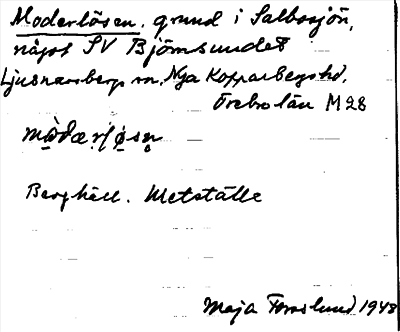 Moderlösen. grund i Salbosjön,
något SV Björnsundet
Ljusnarsbergs sn, Nya Kopparbergs hd,
Örebro län M28
Berghäll. Metställe
Maja Forslund 1948